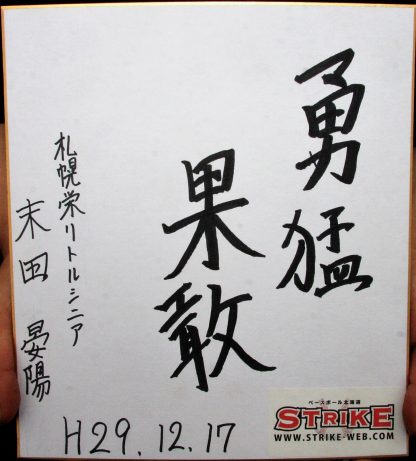 勇猛
果敢
札幌栄リトルシニア
末田 晏陽
H29.12.17
ベースボール北海道
STRIKE
WWW.STRIKE-WEB.COM